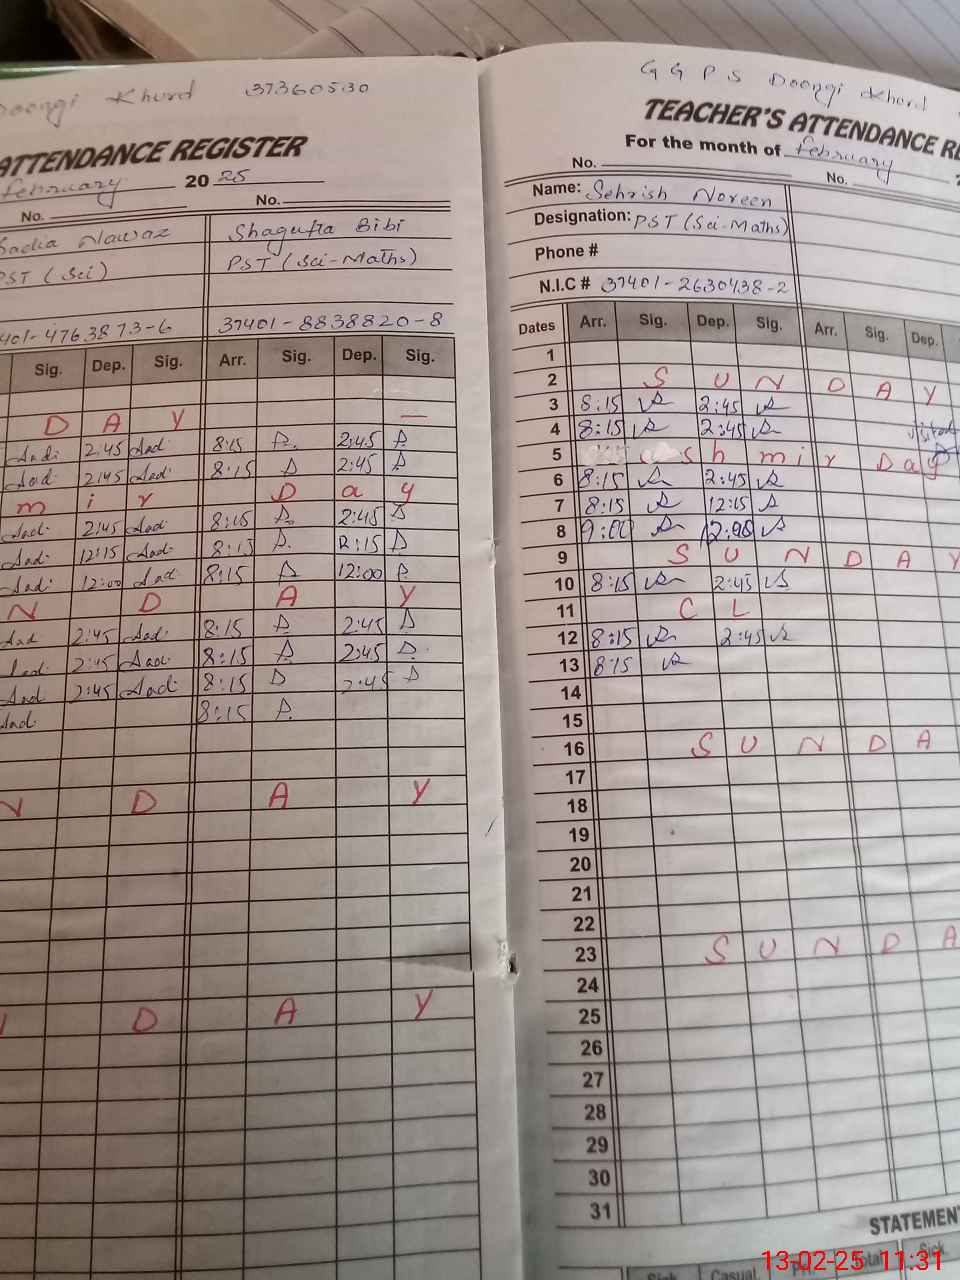 Doongi Khurd 37360530
ATTENDANCE REGISTER
February 20 25
No. No.
Sadia Nawaz Shagufta Bibi
PST (Sci) PST (Sci-Maths)
401-4763873-6 37401-8838820-8
Sig. Dep. Sig. Arr. Sig. Dep. Sig.
D A Y
Sadi 2:45 Sad 8:15 2:45
Sad 2:45 Sad 8:15 2:45
m i r D a y
Sad 2:45 Sad 8:15 2:45
Sad 12:15 Sad 8:15 12:15
Sad 12:00 Sad 8:15 12:00
N D A Y
Sad 2:45 Sad 8:15 2:45
Sad 2:45 Sad 8:15 2:45
Sad 2:45 Sad 8:15 2:45
Sad 8:15
N D A Y
D A Y
G G P S Doongi Khurd
TEACHER'S ATTENDANCE RE
For the month of February
No. No.
Name: Sehrish Noreen
Designation: PST (Sci-Maths)
Phone #
N.I.C # 37401-2630438-2
Dates Arr. Sig. Dep. Sig. Arr. Sig. Dep.
1
2 S U N D A Y
3 8:15 2:45
4 8:15 2:45
5 sh m i r D a y
6 8:15 2:45
7 8:15 12:15
8 9:00
9 S U N D A Y
10 8:15 2:45
11 C L
12 8:15 2:45
13 8:15
14
15
16 S U N D A
17
18
19
20
21
22
23 S U N D A
24
25
26
27
28
29
30
31
STATEMENT
Sick Casual Total Sick
13-02-25 11:31